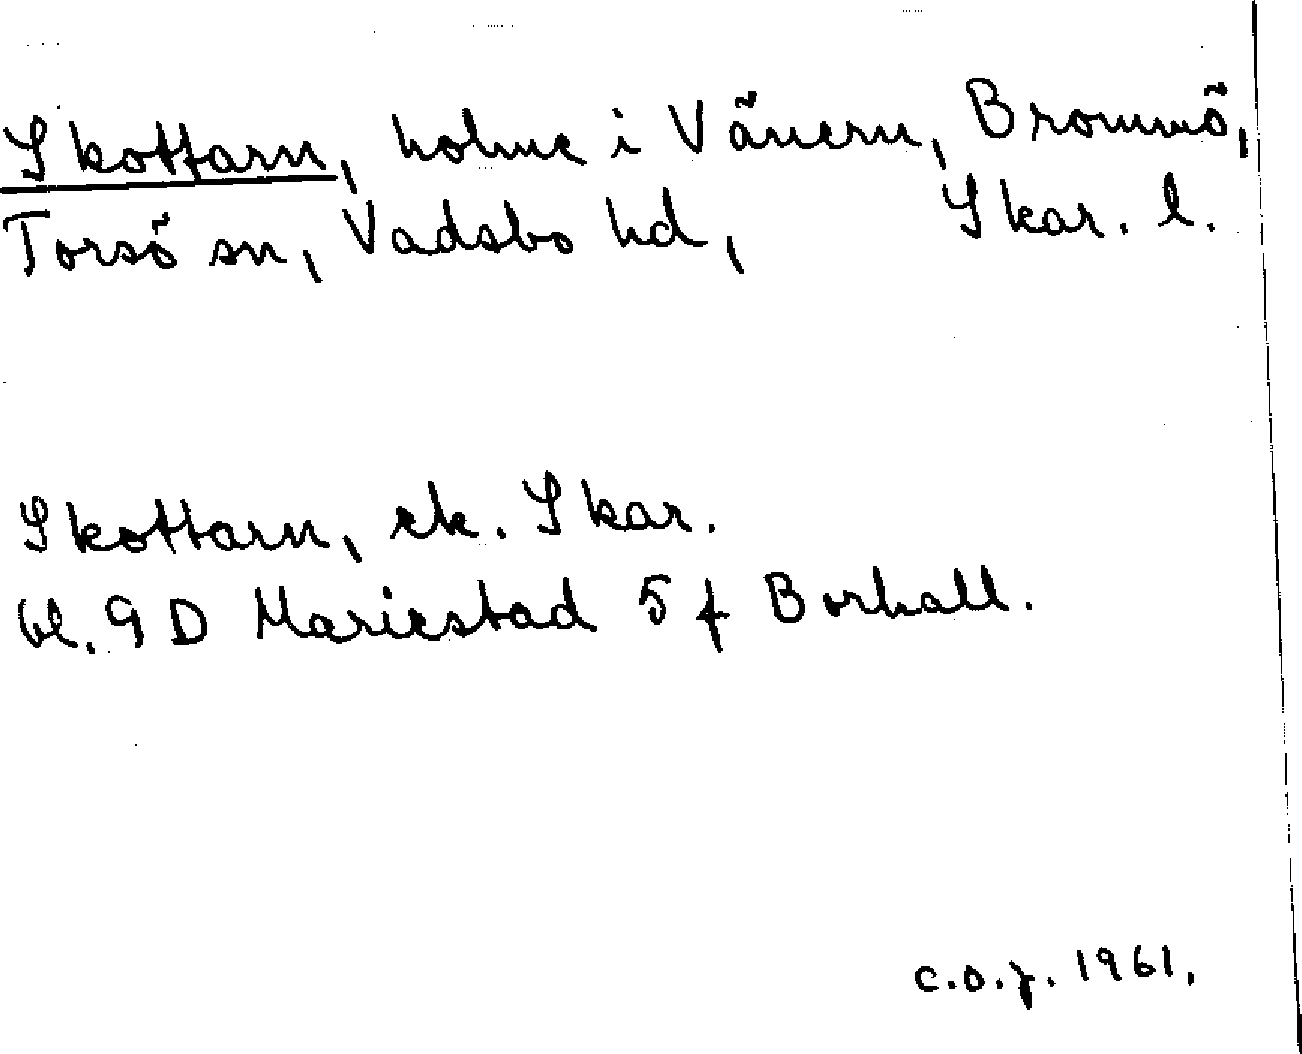 Skottarn, holme i Vänern, Brommö,
Torsö sn, Vadsbo hd, Skar. l.
Skottarn, ek. Skar.
bl. 9 D Mariestad 5 f Borhall.
C.O.J. 1961.